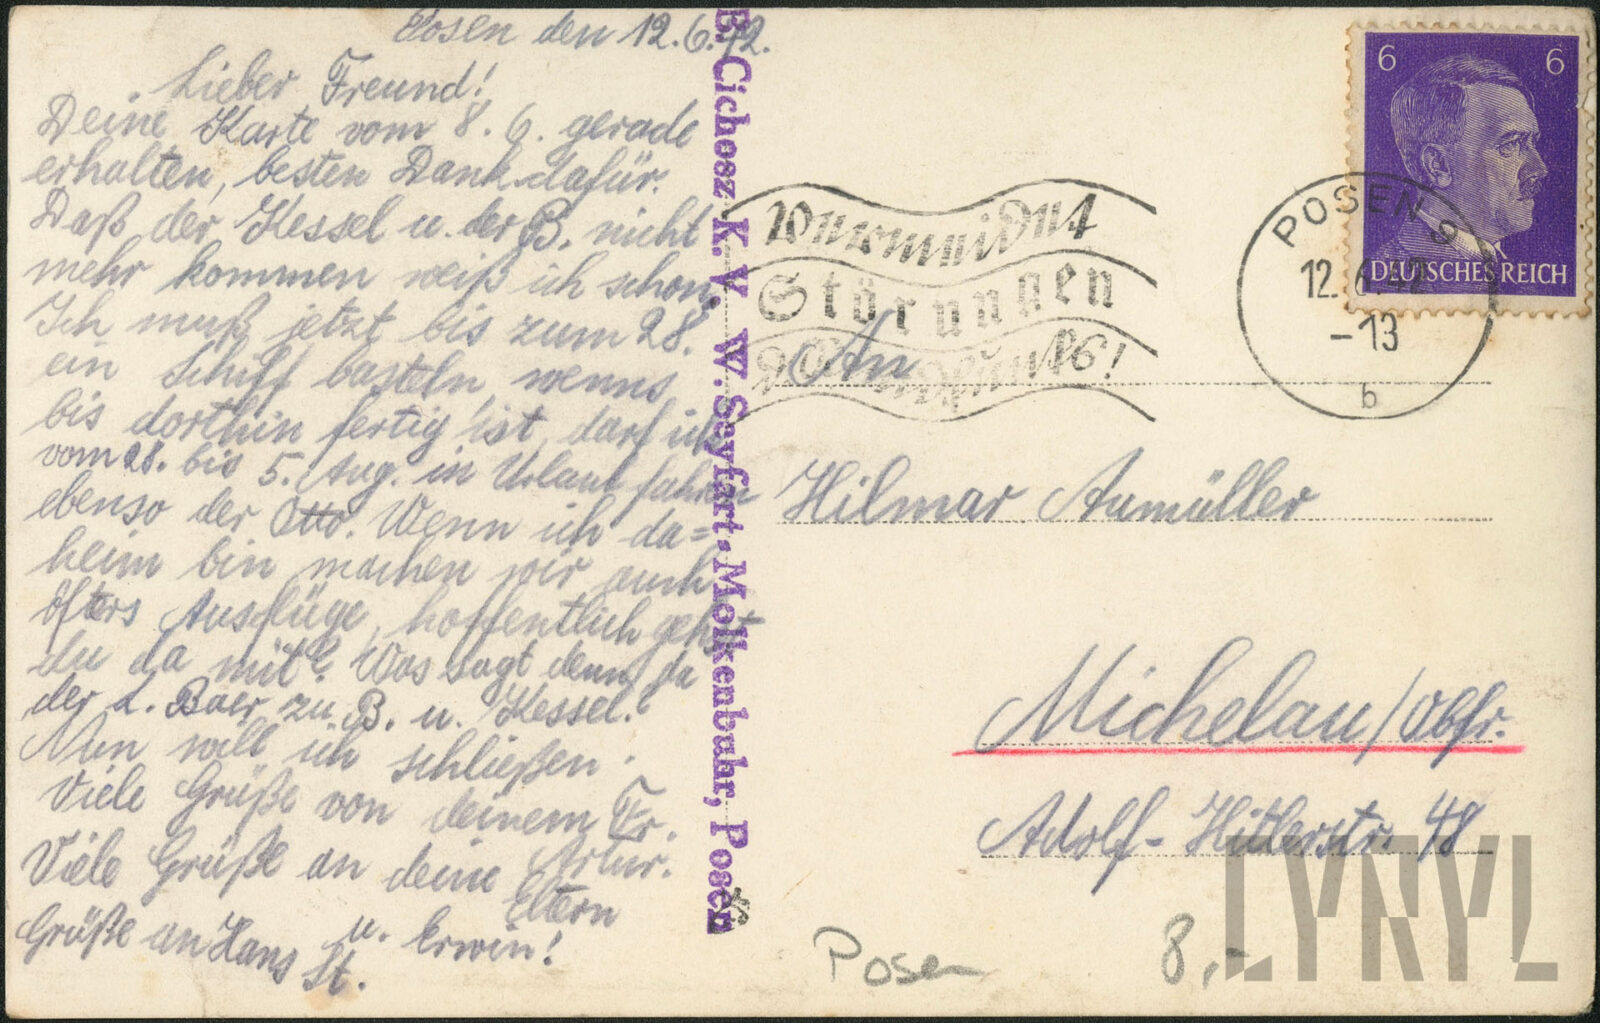 Posen den 12.6.42.
Lieber Freund!
Deine Karte vom 8. 6. gerade
erhalten, besten Dank dafür.
Daß der Kessel u. der B. nicht
mehr kommen weiß ich schon,
Ich muß jetzt bis zum 28.
ein Schiff basteln, wenns
bis dorthin fertig ist, darf ich
vom 28. bis 5. Aug. in Urlaub fahren
ebenso der Otto. Wenn ich da=
heim bin machen wir auch
öfters Ausflüge, hoffentlich gehst
du da mit? Was sagt denn da
der L. Baer zu B. u. Kessel.
Nun will ich schließen.
Viele Grüße von deinem Fr.
Artur.
Viele Grüße an deine Eltern
u. Erwin!
Grüße an Hans St.
B. Cichosz K. W. W. Seyfart-Molkenbuhr, Posen
Vermeidet
Störungen
d. Rundfunks!
6 6
DEUTSCHES REICH
POSEN 9
12. 6. 42
-13
b
An
Hilmar Aumüller
Michelau/Obfr.
Adolf-Hitlerstr. 48
Posen
8,-
LYNYL